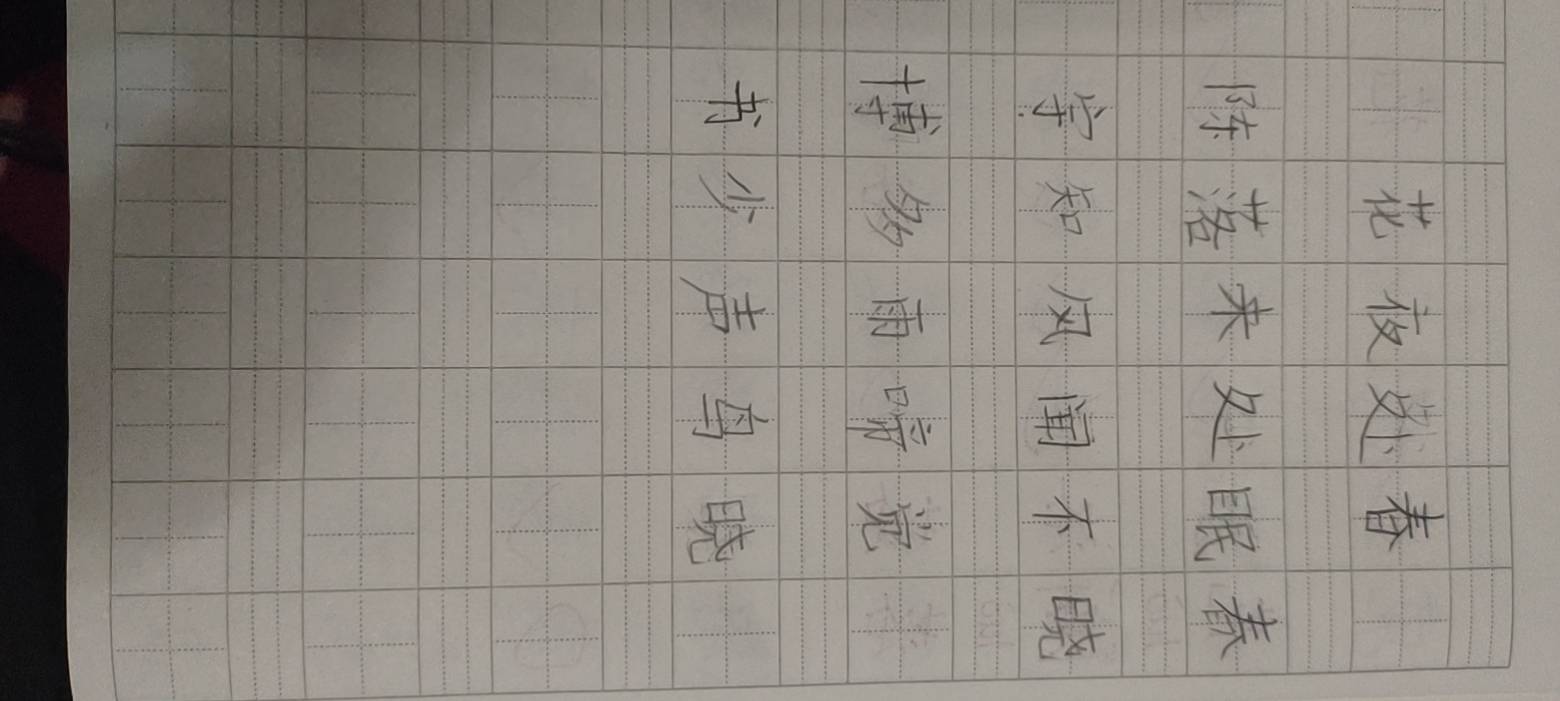 春晓
春眠不觉晓
处处闻啼鸟
夜来风雨声
花落知多少
陈字博书